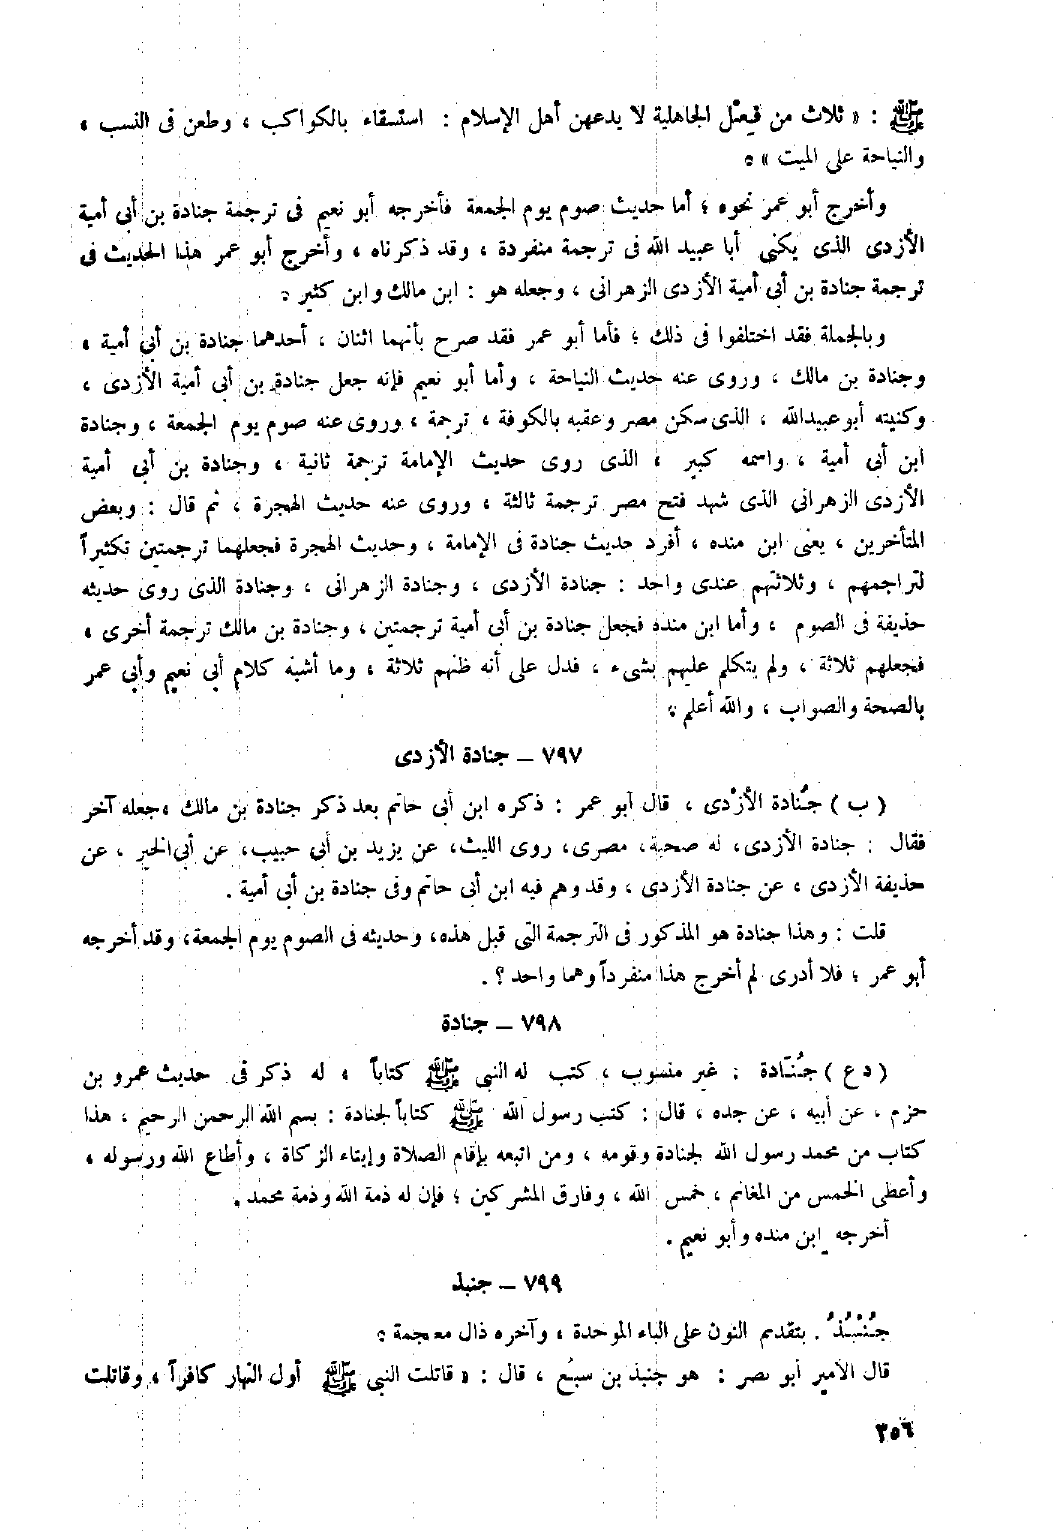 ﷺ : « ثلاث من فِعْل الجاهلية لا يدعهن أهل الإسلام : استسقاء بالكواكب ، وطعن فى النسب ،
والنياحة على الميت » .
وأخرج أبو عمر نحوه ؛ أما حديث صوم يوم الجمعة فأخرجه أبو نعيم فى ترجمة جنادة بن أبى أمية
الأزدى الذى يكنى أبا عبيد الله فى ترجمة منفردة ، وقد ذكرناه ، وأخرج أبو عمر هذا الحديث فى
ترجمة جنادة بن أبى أمية الأزدى الزهرانى ، وجعله هو : ابن مالك وابن كثير .
وبالجملة فقد اختلفوا فى ذلك ؛ فأما أبو عمر فقد صرح بأنهما اثنان ، أحدهما جنادة بن أبى أمية ،
وجنادة بن مالك ، وروى عنه حديث النياحة ، وأما أبو نعيم فإنه جعل جنادة بن أبى أمية الأزدى ،
وكنيته أبو عبيد الله ، الذى سكن مصر وعقبه بالكوفة ، ترجمة ، وروى عنه صوم يوم الجمعة ، وجنادة
ابن أبى أمية ، واسمه كبير ، الذى روى حديث الإمامة ترجمة ثانية ، وجنادة بن أبى أمية
الأزدى الزهرانى الذى شهد فتح مصر ترجمة ثالثة ، وروى عنه حديث الهجرة ، ثم قال : وبعض
المتأخرين ، يعنى ابن منده ، أفرد حديث جنادة فى الإمامة ، وحديث الهجرة فجعلهما ترجمتين تكثيراً
لتراجمهم ، وثلاثتهم عندى واحد : جنادة الأزدى ، وجنادة الزهرانى ، وجنادة الذى روى حديثه
حذيفة فى الصوم ، وأما ابن منده فجعل جنادة بن أبى أمية ترجمتين ، وجنادة بن مالك ترجمة أخرى ،
فجعلهم ثلاثة ، ولم يتكلم عليهم بشىء ، فدل على أنه ظنهم ثلاثة ، وما أشبه كلام أبى نعيم وأبى عمر
بالصحة والصواب ، والله أعلم .
٧٩٧ – جنادة الأزدى
( ب ) جُنَادة الأزْدى ، قال أبو عمر : ذكره ابن أبى حاتم بعد ذكر جنادة بن مالك ، جعله آخر
فقال : جنادة الأزدى ، له صحبة ، مصرى ، روى الليث ، عن يزيد بن أبى حبيب ، عن أبى الخير ، عن
حذيفة الأزدى ، عن جنادة الأزدى ، وقد وهم فيه ابن أبى حاتم وفى جنادة بن أبى أمية .
قلت : وهذا جنادة هو المذكور فى الترجمة التى قبل هذه ، وحديثه فى الصوم يوم الجمعة ، وقد أخرجه
أبو عمر ؛ فلا أدرى لم أخرج هذا منفرداً وهما واحد ؟ .
٧٩٨ – جنادة
( د ع ) جُنَادة : غير منسوب ، كتب له النبى ﷺ كتاباً ، له ذكر فى حديث عمرو بن
حزم ، عن أبيه ، عن جده ، قال : كتب رسول الله ﷺ كتاباً لجنادة : بسم الله الرحمن الرحيم ، هذا
كتاب من محمد رسول الله لجنادة وقومه ، ومن اتبعه بإقام الصلاة وإيتاء الزكاة ، وأطاع الله ورسوله ،
وأعطى الخمس من المغانم ، خمس الله ، وفارق المشركين ؛ فإن له ذمة الله وذمة محمد .
أخرجه ابن منده وأبو نعيم .
٧٩٩ – جنبذ
جُنْبُذُ . بتقديم النون على الباء الموحدة ، وآخره ذال معجمة .
قال الأمير أبو نصر : هو جنبذ بن سبُع ، قال : « قاتلت النبى ﷺ أول النهار كافراً ، وقاتلت
٣٥٦